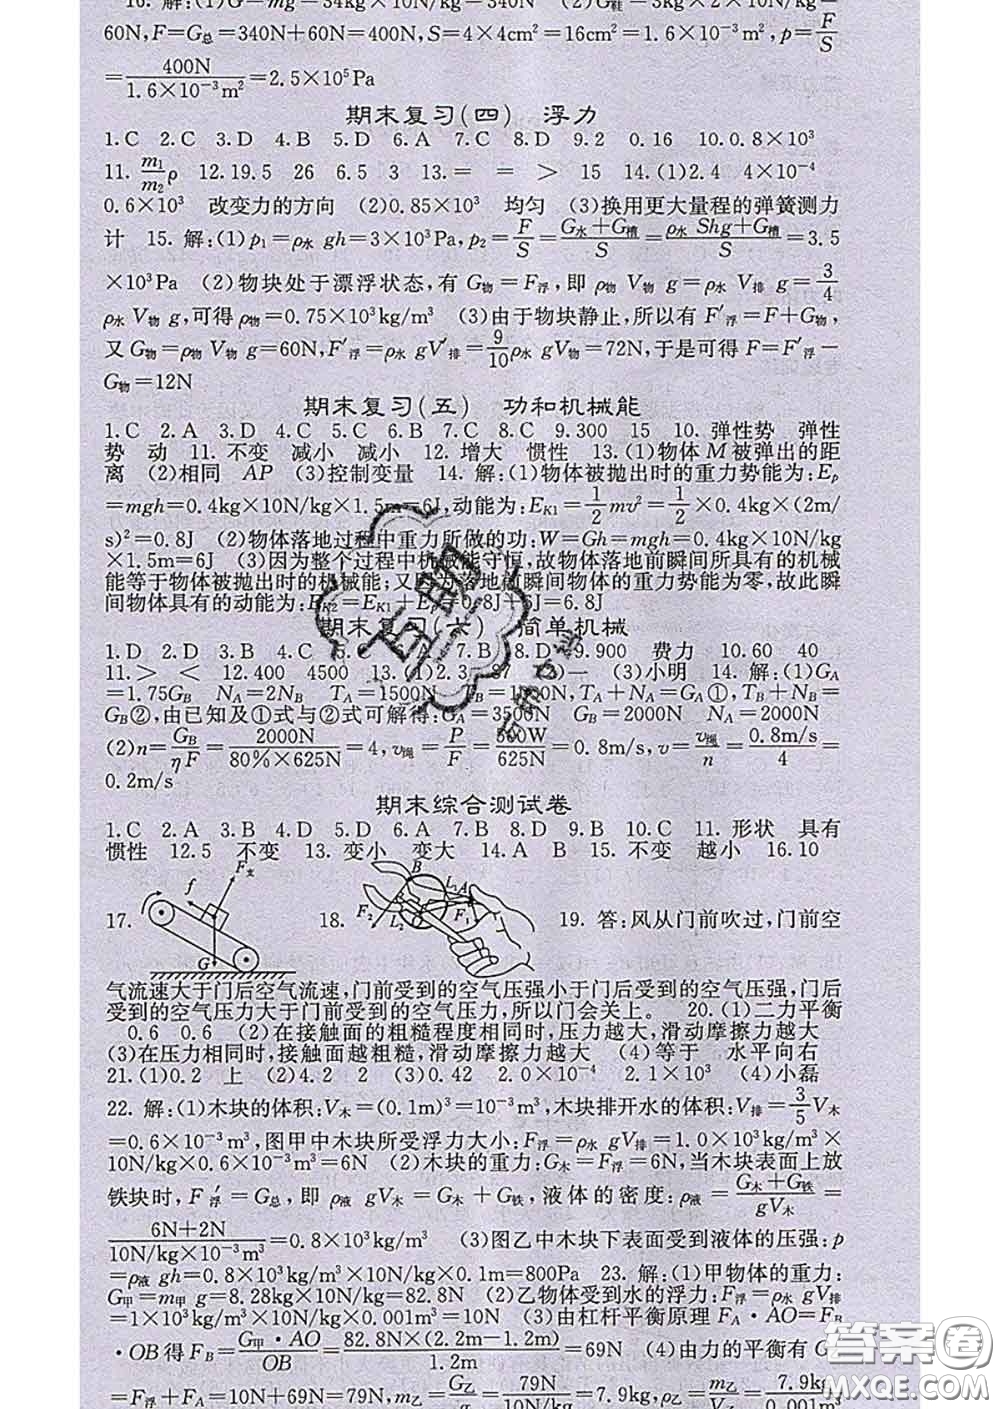 16. 解:(1)G=mg=34kg×10N/kg=340N (2)G鞋=3kg×2×10N/kg=
60N,F=G总=340N+60N=400N,S=4×4cm²=16cm²=1.6×10⁻³m²,p=F/S
=400N/1.6×10⁻³m²=2.5×10⁵Pa
期末复习(四) 浮力
1.C 2.C 3.D 4.B 5.D 6.A 7.C 8.D 9.2 0.16 10.0.8×10³
11. m₁/m₂ρ 12.19.5 26 6.5 3 13.= = > 15 14.(1)2.4 4×10⁻⁴
0.6×10³ 改变力的方向 (2)0.85×10³ 均匀 (3)换用更大量程的弹簧测力
计 15. 解:(1)p₁=ρ水gh=3×10³Pa,p₂=F/S=G水+G槽/S=ρ水Shg+G槽/S=3.5
×10³Pa (2)物块处于漂浮状态,有 G物=F浮,即 ρ物V物g=ρ水V排g=3/4
ρ水V物g,可得ρ物=0.75×10³kg/m³ (3)由于物块静止,所以有 F′浮=F+G物,
又G物=ρ物V物g=60N,F′浮=ρ水gV′排=9/10ρ水gV物=72N,于是可得F=F′浮-
G物=12N
期末复习(五) 功和机械能
1.C 2.A 3.D 4.C 5.C 6.B 7.C 8.C 9.300 15 10. 弹性势 弹性
势 动 11. 不变 减小 减小 12. 增大 惯性 13.(1)物体M被弹出的距
离 (2)相同 AP (3)控制变量 14. 解:(1)物体被抛出时的重力势能为:Ep
=mgh=0.4kg×10N/kg×1.5m=6J,动能为:EK1=1/2mv²=1/2×0.4kg×(2m/
s)²=0.8J (2)物体落地过程中重力所做的功:W=Gh=mgh=0.4kg×10N/kg
×1.5m=6J (3)因为整个过程中机械能守恒,故物体落地前瞬间所具有的机械
能等于物体被抛出时的机械能;又因为落地前瞬间物体的重力势能为零,故此瞬
间物体具有的动能为:EK2=EK1+Ep=0.8J+6J=6.8J
期末复习(六) 简单机械
1.D 2.D 3.B 4.C 5. 7.B 8.D 9.900 费力 10.60 40
11.> < 12.400 4500 13.(1)2.3 (3)小明 14. 解:(1)GA
=1.75GB NA=2NB TA=1500N TB=1000N,TA+NA=GA①,TB+NB=
GB②,由已知及①式与②式可解得:GA=3500N GB=2000N NA=2000N
(2)n=GB/ηF=2000N/80%×625N=4,v绳=P/F=500W/625N=0.8m/s,v=v绳/n=0.8m/s/4=
0.2m/s
期末综合测试卷
1.C 2.A 3.B 4.D 5.D 6.A 7.B 8.D 9.B 10.C 11. 形状 具有
惯性 12.5 不变 13. 变小 变大 14.A B 15. 不变 越小 16.10
17. f F支 G 18. B L₁ A F₂ L₂ F₁ 19. 答:风从门前吹过,门前空
气流速大于门后空气流速,门前受到的空气压强小于门后受到的空气压强,门后
受到的空气压力大于门前受到的空气压力,所以门会关上。 20.(1)二力平衡
0.6 0.6 (2)在接触面的粗糙程度相同时,压力越大,滑动摩擦力越大
(3)在压力相同时,接触面越粗糙,滑动摩擦力越大 (4)等于 水平向右
21.(1)0.2 上 (2)4.2 2 (3)0.42 2.0×10⁻⁴ 2.1×10³ (4)小磊
22. 解:(1)木块的体积:V木=(0.1m)³=10⁻³m³,木块排开水的体积:V排=3/5V木
=0.6×10⁻³m³,图甲中木块所受浮力大小:F浮=ρ水gV排=1.0×10³kg/m³×
10N/kg×0.6×10⁻³m³=6N (2)木块的重力:G木=F浮=6N,当木块表面上放
铁块时,F′浮=G总,即 ρ液gV木=G木+G铁,液体的密度:ρ液=G木+G铁/gV木=
6N+2N/10N/kg×10⁻³m³=0.8×10³kg/m³ (3)图乙中木块下表面受到液体的压强:p
=ρ液gh=0.8×10³kg/m³×10N/kg×0.1m=800Pa 23. 解:(1)甲物体的重力:
G甲=m甲g=8.28kg×10N/kg=82.8N (2)乙物体受到水的浮力:F浮=ρ水gV排
=1×10³kg/m³×10N/kg×0.001m³=10N (3)由杠杆平衡原理FA·AO=FB
·OB得FB=G甲·AO/OB=82.8N×(2.2m-1.2m)/1.2m=69N (4)由力的平衡有G
=F浮+FA=10N+69N=79N,m乙=G乙/g=79N/10N/kg=7.9kg,ρ乙=m乙/V乙=7.9kg/0.001m³
答案圈
MXQE.COM